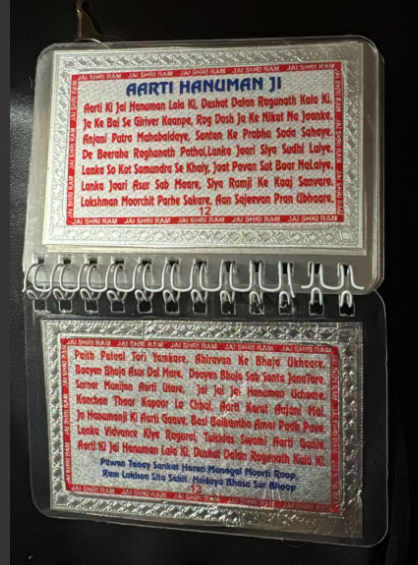 JAI SHRI RAM JAI SHRI RAM JAI SHRI RAM JAI SHRI RAM
AARTI HANUMAN JI
Aarti Ki Jai Hanuman Lala Ki, Dushat Dalan Ragunath Kala Ki.
Ja Ke Bal Se Giriver Kaanpe, Rog Dosh Ja Ke Nikat Na Jaanke.
Anjani Putra Mahabaldaye, Santan Ke Prabhu Sada Sahaye.
De Beeraha Raghunath Pathai, Lanka Jaari Siya Sudhi Laiye.
Lanka So Kot Samundra Se Khaiy, Jaat Pavan Sut Baar NaLaiye.
Lanka Jaari Asur Sab Maare, Siya Ramji Ke Kaaj Sanvare.
Lakshman Moorchit Parhe Sakare, Aan Sajeevan Pran Ubbaare.
12
JAI SHRI RAM JAI SHRI RAM JAI SHRI RAM JAI SHRI RAM
JAI SHRI RAM JAI SHRI RAM JAI SHRI RAM JAI SHRI RAM
Paith Pataal Tori Yamkare, Ahiravan Ke Bhuja Ukhaare,
Baayen Bhuja Asur Dal Mare, Daayen Bhuja Sab Santa JanaTare.
Surnar Manijan Aarti Utare, Jai Jai Jai Hanuman Uchaare.
Kanchan Thaar Kapoor Lo Chhai, Aarti Karat Aajani Mai.
Jo Hanumanji Ki Aarti Gaave, Basi Baikuntha Amar Padh Pave.
Lanka Vidvance Kiye Ragurai, Tulsidas Swami Aarti Gaaie,
Aarti Ki Jai Hanuman Lala Ki, Dushat Dalan Ragunath Kala Ki.
Pawan Tanay Sankat Haran Manogal Moorti Roop,
Ram Lakhan Sita Sahit Hridaya Bhasa Sur Bhoop
13
JAI SHRI RAM JAI SHRI RAM JAI SHRI RAM JAI SHRI RAM